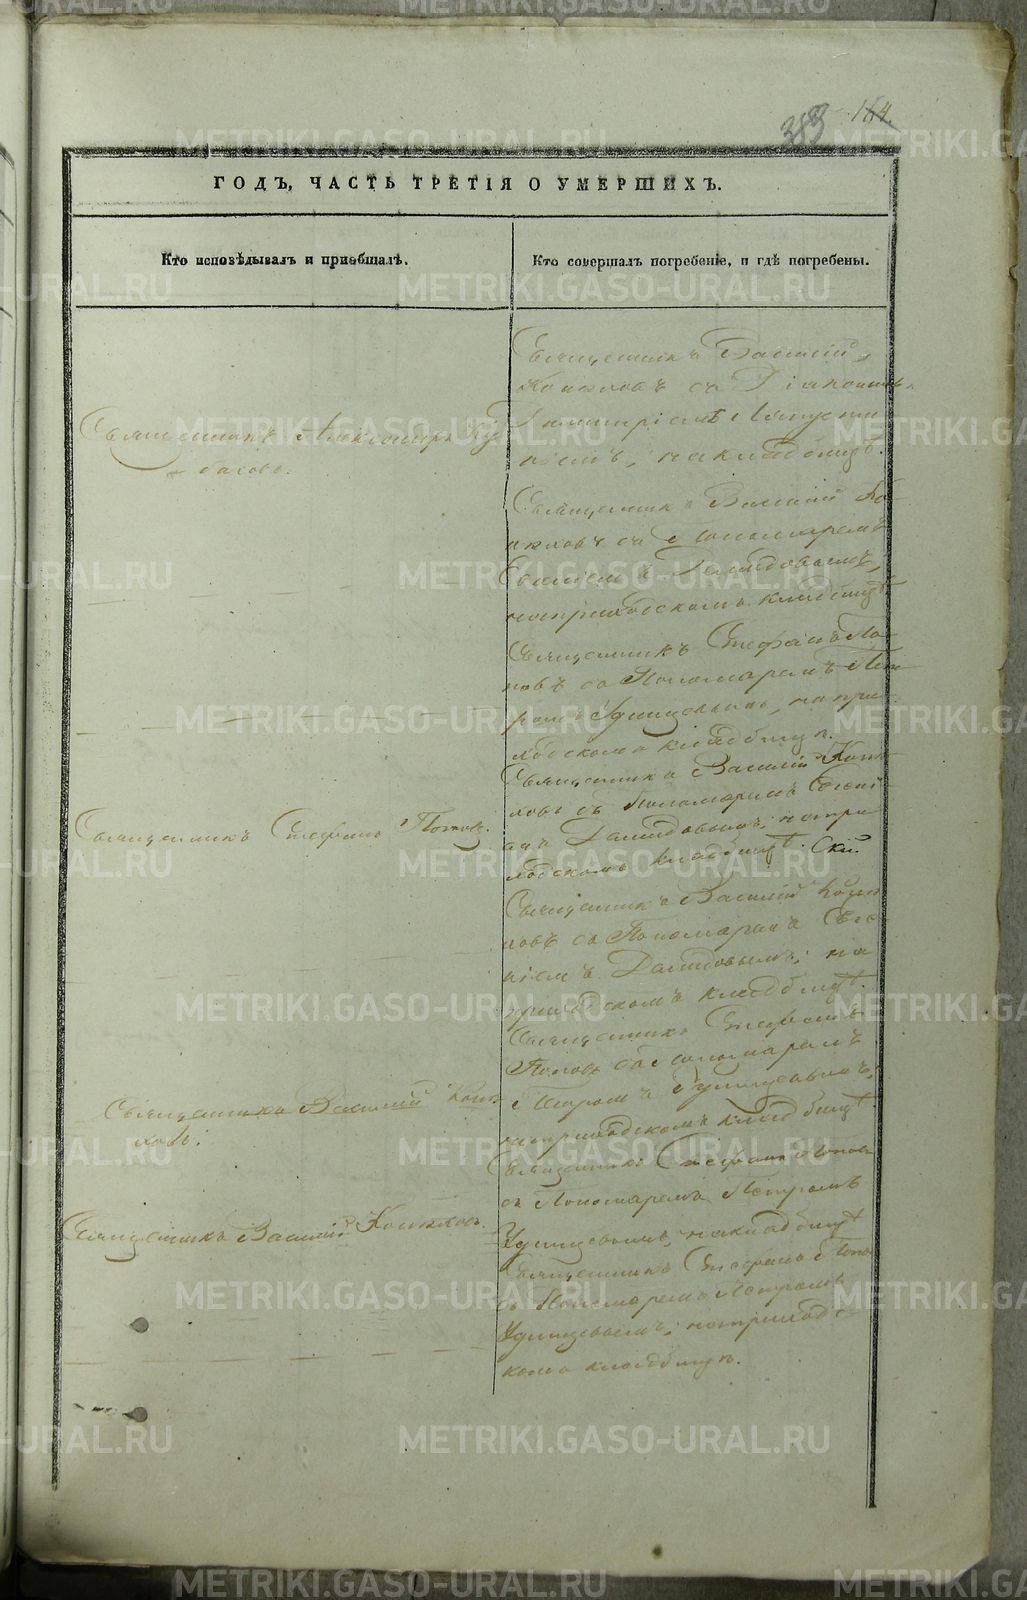 313 164.
ГОДЪ, ЧАСТЬ ТРЕТІЯ О УМЕРШИХЪ.
Кто исповѣдывалъ и пріобщалъ.
Кто совершалъ погребеніе, и гдѣ погребены.
Священникъ Василій
Конюховъ съ Діакономъ
на кладбищѣ.
Священникъ Александръ
Священникъ Василій Ко-
нюховъ съ Пономаремъ
Евгеніемъ Давыдовымъ,
на приходскомъ кладбищѣ.
Священникъ Стефанъ По-
повъ съ Пономаремъ Пет-
ромъ Удинцевымъ, на при-
ходскомъ кладбищѣ.
Священникъ Василій Коню-
ховъ съ Пономаремъ Евгені-
емъ Давыдовымъ; на при-
ходскомъ кладбищѣ.
Священникъ Стефанъ Поповъ.
Священникъ Василій Коню-
ховъ съ Пономаремъ Евге-
ніемъ Давыдовымъ; на
приходскомъ кладбищѣ.
Священникъ Стефанъ
Поповъ съ Пономаремъ
Петромъ Удинцевымъ,
на приходскомъ кладбищѣ
Священникъ Василій Коню-
ховъ.
Священникъ Стефанъ Поповъ
съ Пономаремъ Петромъ
Удинцевымъ, на кладбищѣ
Священникъ Василій Конюховъ.
Священникъ Стефанъ Попо
съ Пономаремъ Петромъ
Удинцевымъ; на приходс-
комъ кладбищѣ.
METRIKI.GASO-URAL.RU